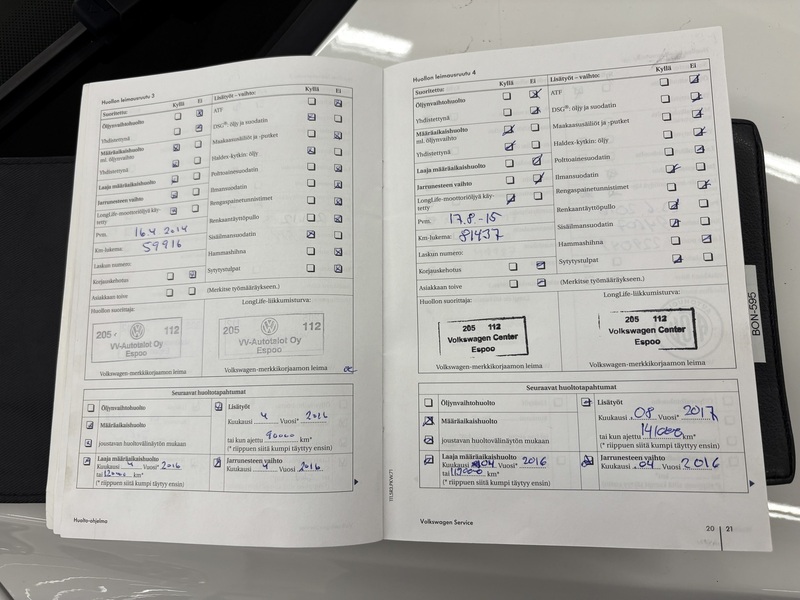 Huollon leimausruutu 3
Suoritettu: Kyllä Ei
Öljynvaihtohuolto
Yhdistettynä
Määräaikaishuolto
ml. öljynvaihto
Yhdistettynä
Laaja määräaikaishuolto
Jarrunesteen vaihto
LongLife-moottoriöljyä käy-
tetty
Pvm. 16.4.2014
Km-lukema: 59916
Laskun numero:
Korjauskehotus
Asiakkaan toive
Huollon suorittaja:
205 112
VV-Autotalot Oy
Espoo
Volkswagen-merkkikorjaamon leima
Lisätyöt – vaihto: Kyllä Ei
ATF
DSG®: öljy ja suodatin
Maakaasusäiliöt ja -putket
Haldex-kytkin: öljy
Polttoainesuodatin
Ilmansuodatin
Rengaspainetunnistimet
Renkaantäyttöpullo
Sisäilmansuodatin
Hammashihna
Sytytystulpat
(Merkitse työmääräykseen.)
LongLife-liikkumisturva:
205 112
VV-Autotalot Oy
Espoo
Volkswagen-merkkikorjaamon leima
Seuraavat huoltotapahtumat
Öljynvaihtohuolto
Määräaikaishuolto
joustavan huoltovälinäytön mukaan
Laaja määräaikaishuolto
Kuukausi 4 Vuosi* 2016
(* riippuen siitä kumpi täyttyy ensin)
Lisätyöt
Kuukausi 4 Vuosi* 2016
tai kun ajettu 90000 km*
(* riippuen siitä kumpi täyttyy ensin)
Jarrunesteen vaihto
Kuukausi 4 Vuosi 2016
Huolto-ohjelma
Huollon leimausruutu 4
Suoritettu: Kyllä Ei
Öljynvaihtohuolto
Yhdistettynä
Määräaikaishuolto
ml. öljynvaihto
Yhdistettynä
Laaja määräaikaishuolto
Jarrunesteen vaihto
LongLife-moottoriöljyä käy-
tetty
Pvm. 17.8-15
Km-lukema: 81437
Laskun numero:
Korjauskehotus
Asiakkaan toive
Huollon suorittaja:
205 112
Volkswagen Center
Espoo
Volkswagen-merkkikorjaamon leima
Lisätyöt – vaihto: Kyllä Ei
ATF
DSG®: öljy ja suodatin
Maakaasusäiliöt ja -putket
Haldex-kytkin: öljy
Polttoainesuodatin
Ilmansuodatin
Rengaspainetunnistimet
Renkaantäyttöpullo
Sisäilmansuodatin
Hammashihna
Sytytystulpat
(Merkitse työmääräykseen.)
LongLife-liikkumisturva:
205 112
Volkswagen Center
Espoo
Volkswagen-merkkikorjaamon leima
Seuraavat huoltotapahtumat
Öljynvaihtohuolto
Määräaikaishuolto
joustavan huoltovälinäytön mukaan
Laaja määräaikaishuolto
Kuukausi 04 Vuosi* 2016
(* riippuen siitä kumpi täyttyy ensin)
Lisätyöt
Kuukausi 08 Vuosi* 2017
tai kun ajettu 141000 km*
(* riippuen siitä kumpi täyttyy ensin)
Jarrunesteen vaihto
Kuukausi 04 Vuosi 2016
Volkswagen Service
20 21
BON-595